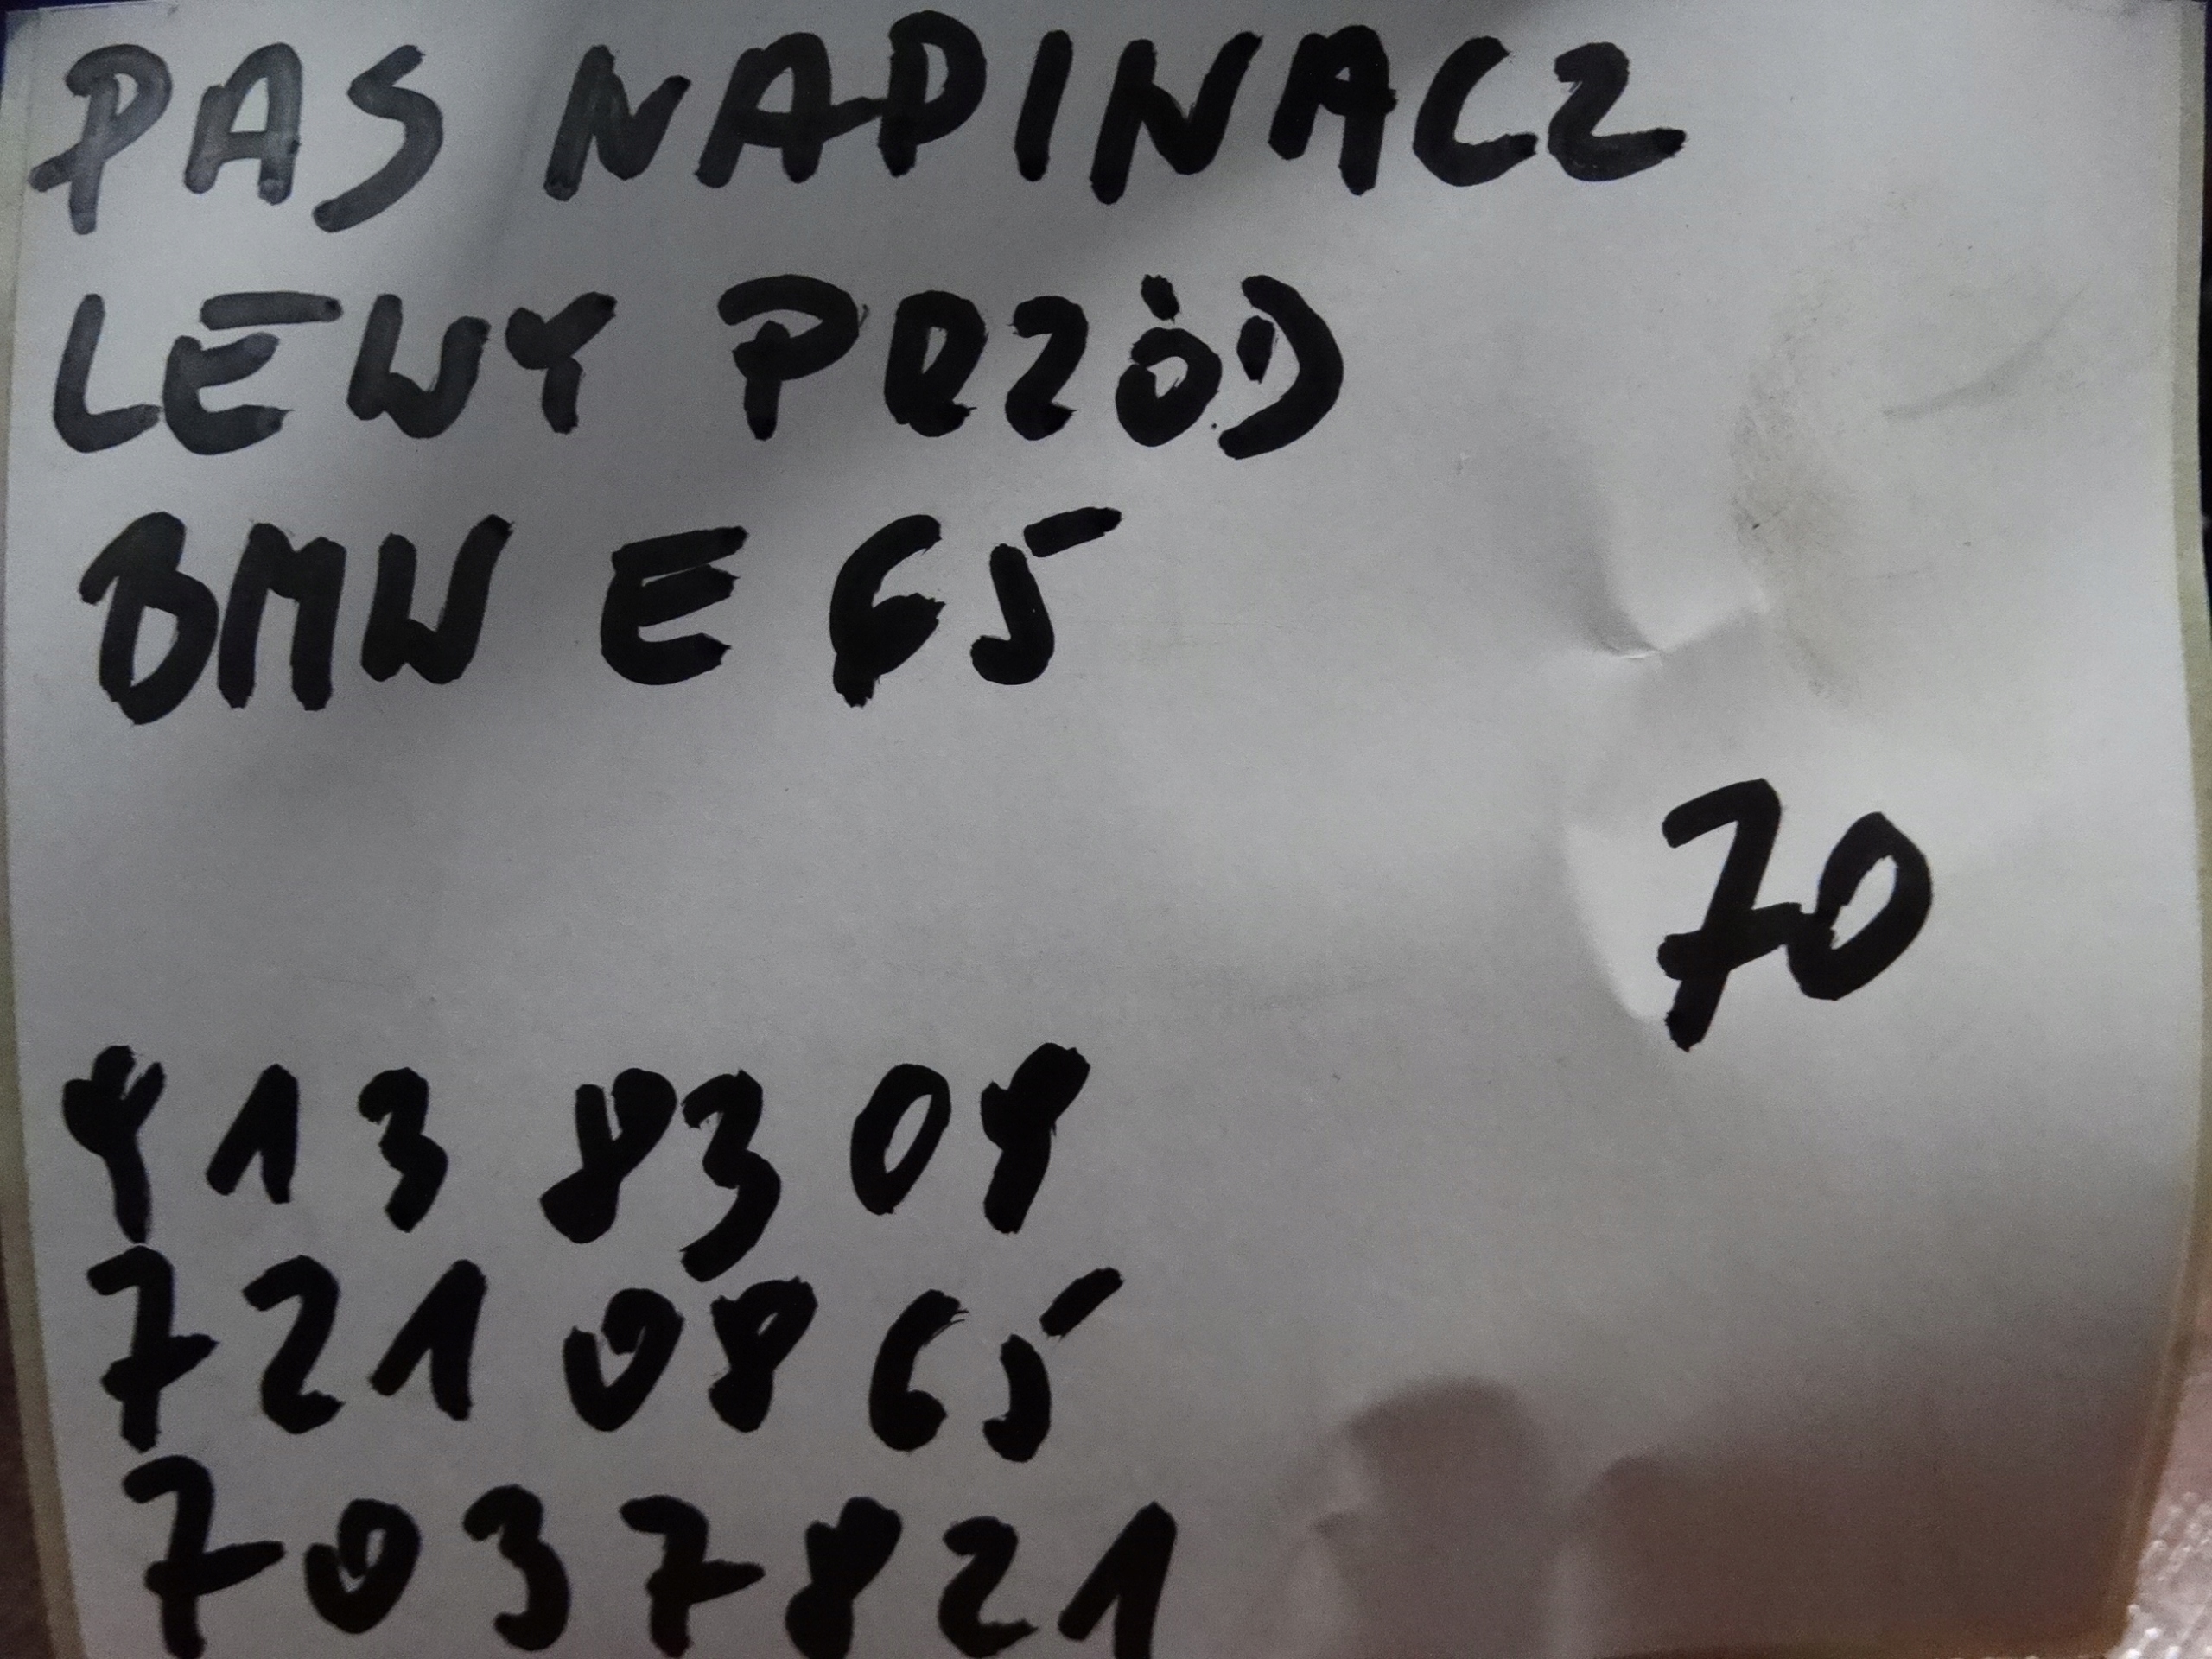 PAS NAPINACZ
LEWY PRZÓD
BMW E65
70
413 83 04
721 08 65
7037821